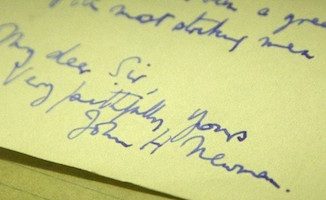 a grea
most striking men
My dear Sir,
Very faithfully yours
John H Newman.